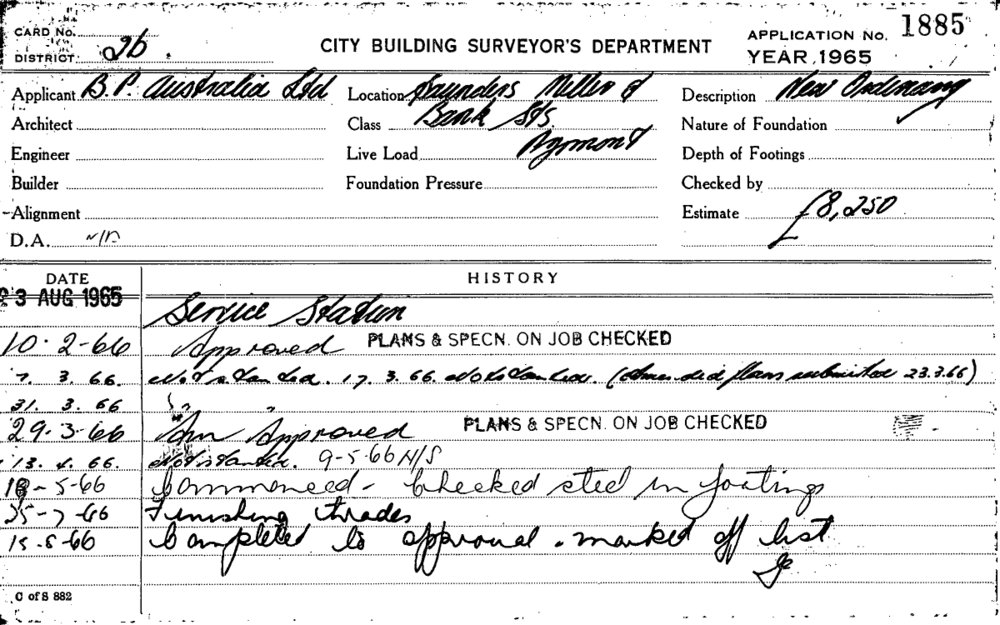 CARD No.
DISTRICT 26.
CITY BUILDING SURVEYOR'S DEPARTMENT
APPLICATION No. 1885
YEAR 1965
Applicant B.P. Australia Ltd
Location Saunders Miller &
Description New
Architect
Class Bank Sts.
Nature of Foundation
Engineer
Live Load Pyrmont
Depth of Footings
Builder
Foundation Pressure
Checked by
Alignment
Estimate £8,250
D.A. N/A
DATE
HISTORY
3 AUG 1965
Service Station
10.2-66 Approved PLANS & SPECN. ON JOB CHECKED
7. 3. 66. Not started. 17. 3. 66. Not started. (Amended plans submitted 23.3.66)
31. 3. 66 " "
29.3-66 Am Approved PLANS & SPECN. ON JOB CHECKED
13. 4. 66. Not started. 9-5-66 N/S
18-5-66 Commenced - Checked steel in footings
25-7-66 Finishing trades
15-8-66 Completed to approval. marked off list
C of S 882